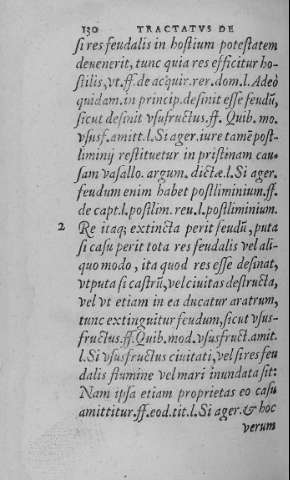 130 TRACTATVS DE
si res feudalis in hostium potestatem
deuenerit, tunc quia res efficitur ho-
stilis, vt. ff. de acquir. rer. dom. l. Adeò
quidam. in princip. desinit esse feudũ,
sicut desinit vsufructus. ff. Quib. mo.
vsusf. amitt. l. Si ager. iure tamẽ post-
liminij restituetur in pristinam cau-
sam vasallo. argum. dictæ. l. Si ager.
feudum enim habet postliminium. ff.
de capt. l. postlim. reu. l. postliminium.
2 Re itaq; extincta perit feudũ, puta
si casu perit tota res feudalis vel ali-
quo modo, ita quod res esse desinat,
vt puta si castrũ, vel ciuitas destructa,
vel vt etiam in ea ducatur aratrum,
tunc extinguitur feudum, sicut vsus-
fructus. ff. Quib. mod. vsusfruct. amit.
l. Si vsusfructus ciuitati, vel si res feu
dalis flumine vel mari inundata sit:
Nam ipsa etiam proprietas eo casu
amittitur. ff. eod. tit. l. Si ager. & hoc
verum